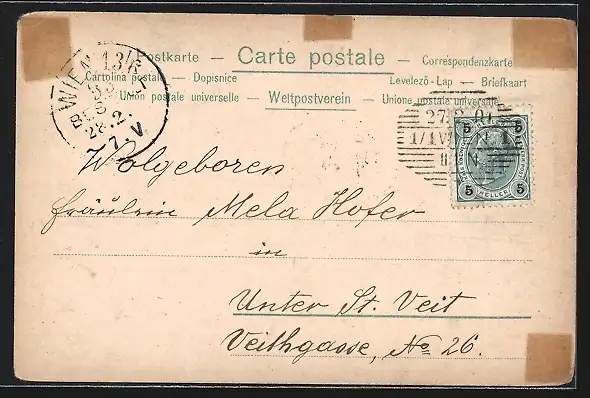 Postkarte — Carte postale — Correspondenzkarte
Cartolina postale — Dopisnice Levelező-Lap — Briefkaart
Union postale universelle — Weltpostverein — Unione postale universale
WIEN 13/8
28.2.
7.V
27.2.01
5 5
HELLER
5 5
Wolgeboren
Fräulein Mela Hofer
in
Unter St. Veit
Veithgasse, No 26.